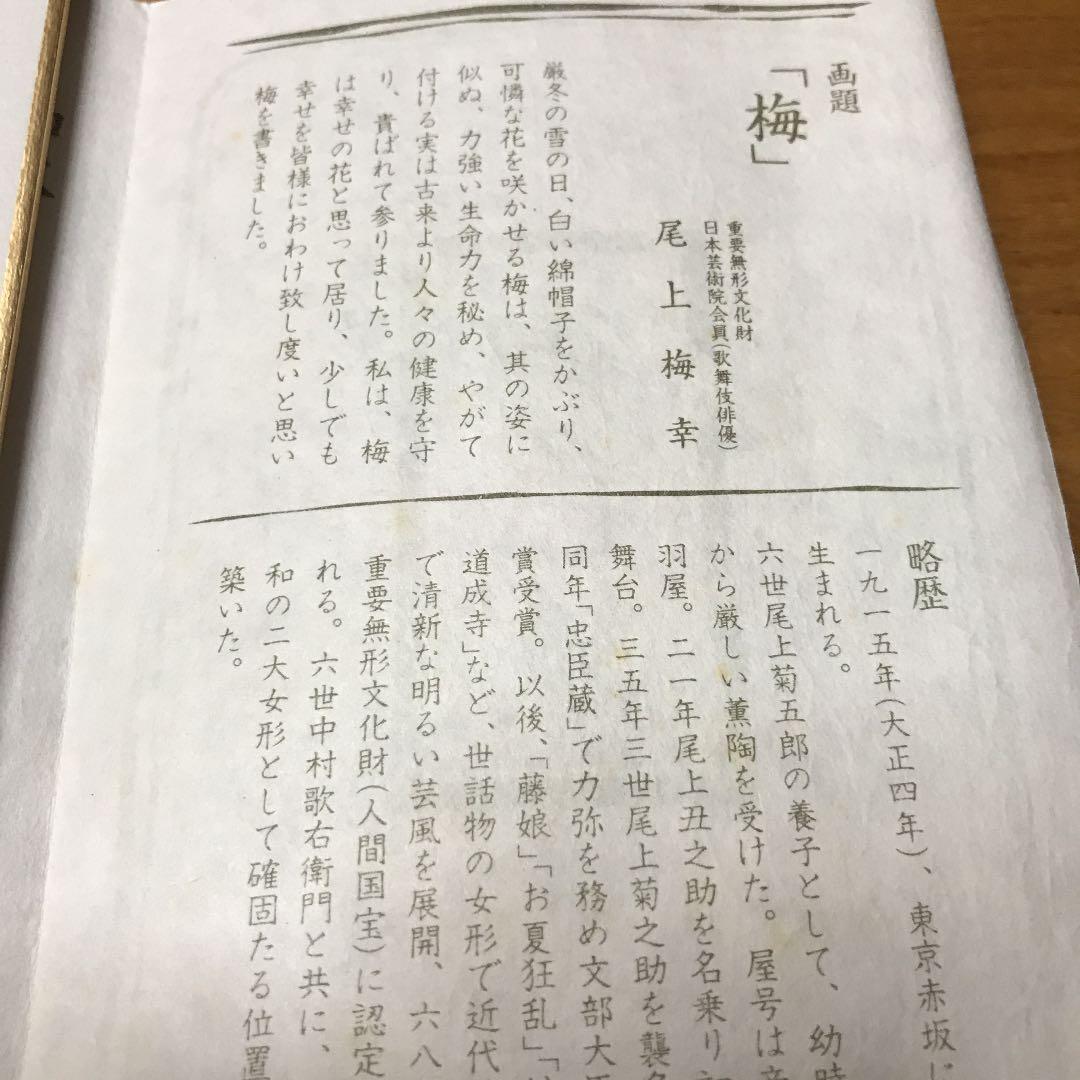 画題
「梅」
重要無形文化財
日本芸術院会員(歌舞伎俳優)
尾上梅幸
厳冬の雪の日、白い綿帽子をかぶり、
可憐な花を咲かせる梅は、其の姿に
似ぬ、力強い生命力を秘め、やがて
付ける実は古来より人々の健康を守
り、貴ばれて参りました。私は、梅
は幸せの花と思って居り、少しでも
幸せを皆様におわけ致し度いと思い
梅を書きました。
略歴
一九一五年(大正四年)、東京赤坂に
生まれる。
六世尾上菊五郎の養子として、幼時
から厳しい薫陶を受けた。屋号は音
羽屋。二一年尾上丑之助を名乗り
舞台。三五年三世尾上菊之助を襲名
同年「忠臣蔵」で力弥を務め文部大臣
賞受賞。以後、「藤娘」「お夏狂乱」「
道成寺」など、世話物の女形で近代
で清新な明るい芸風を展開、六八
重要無形文化財(人間国宝)に認定
れる。六世中村歌右衛門と共に、
和の二大女形として確固たる位置
築いた。